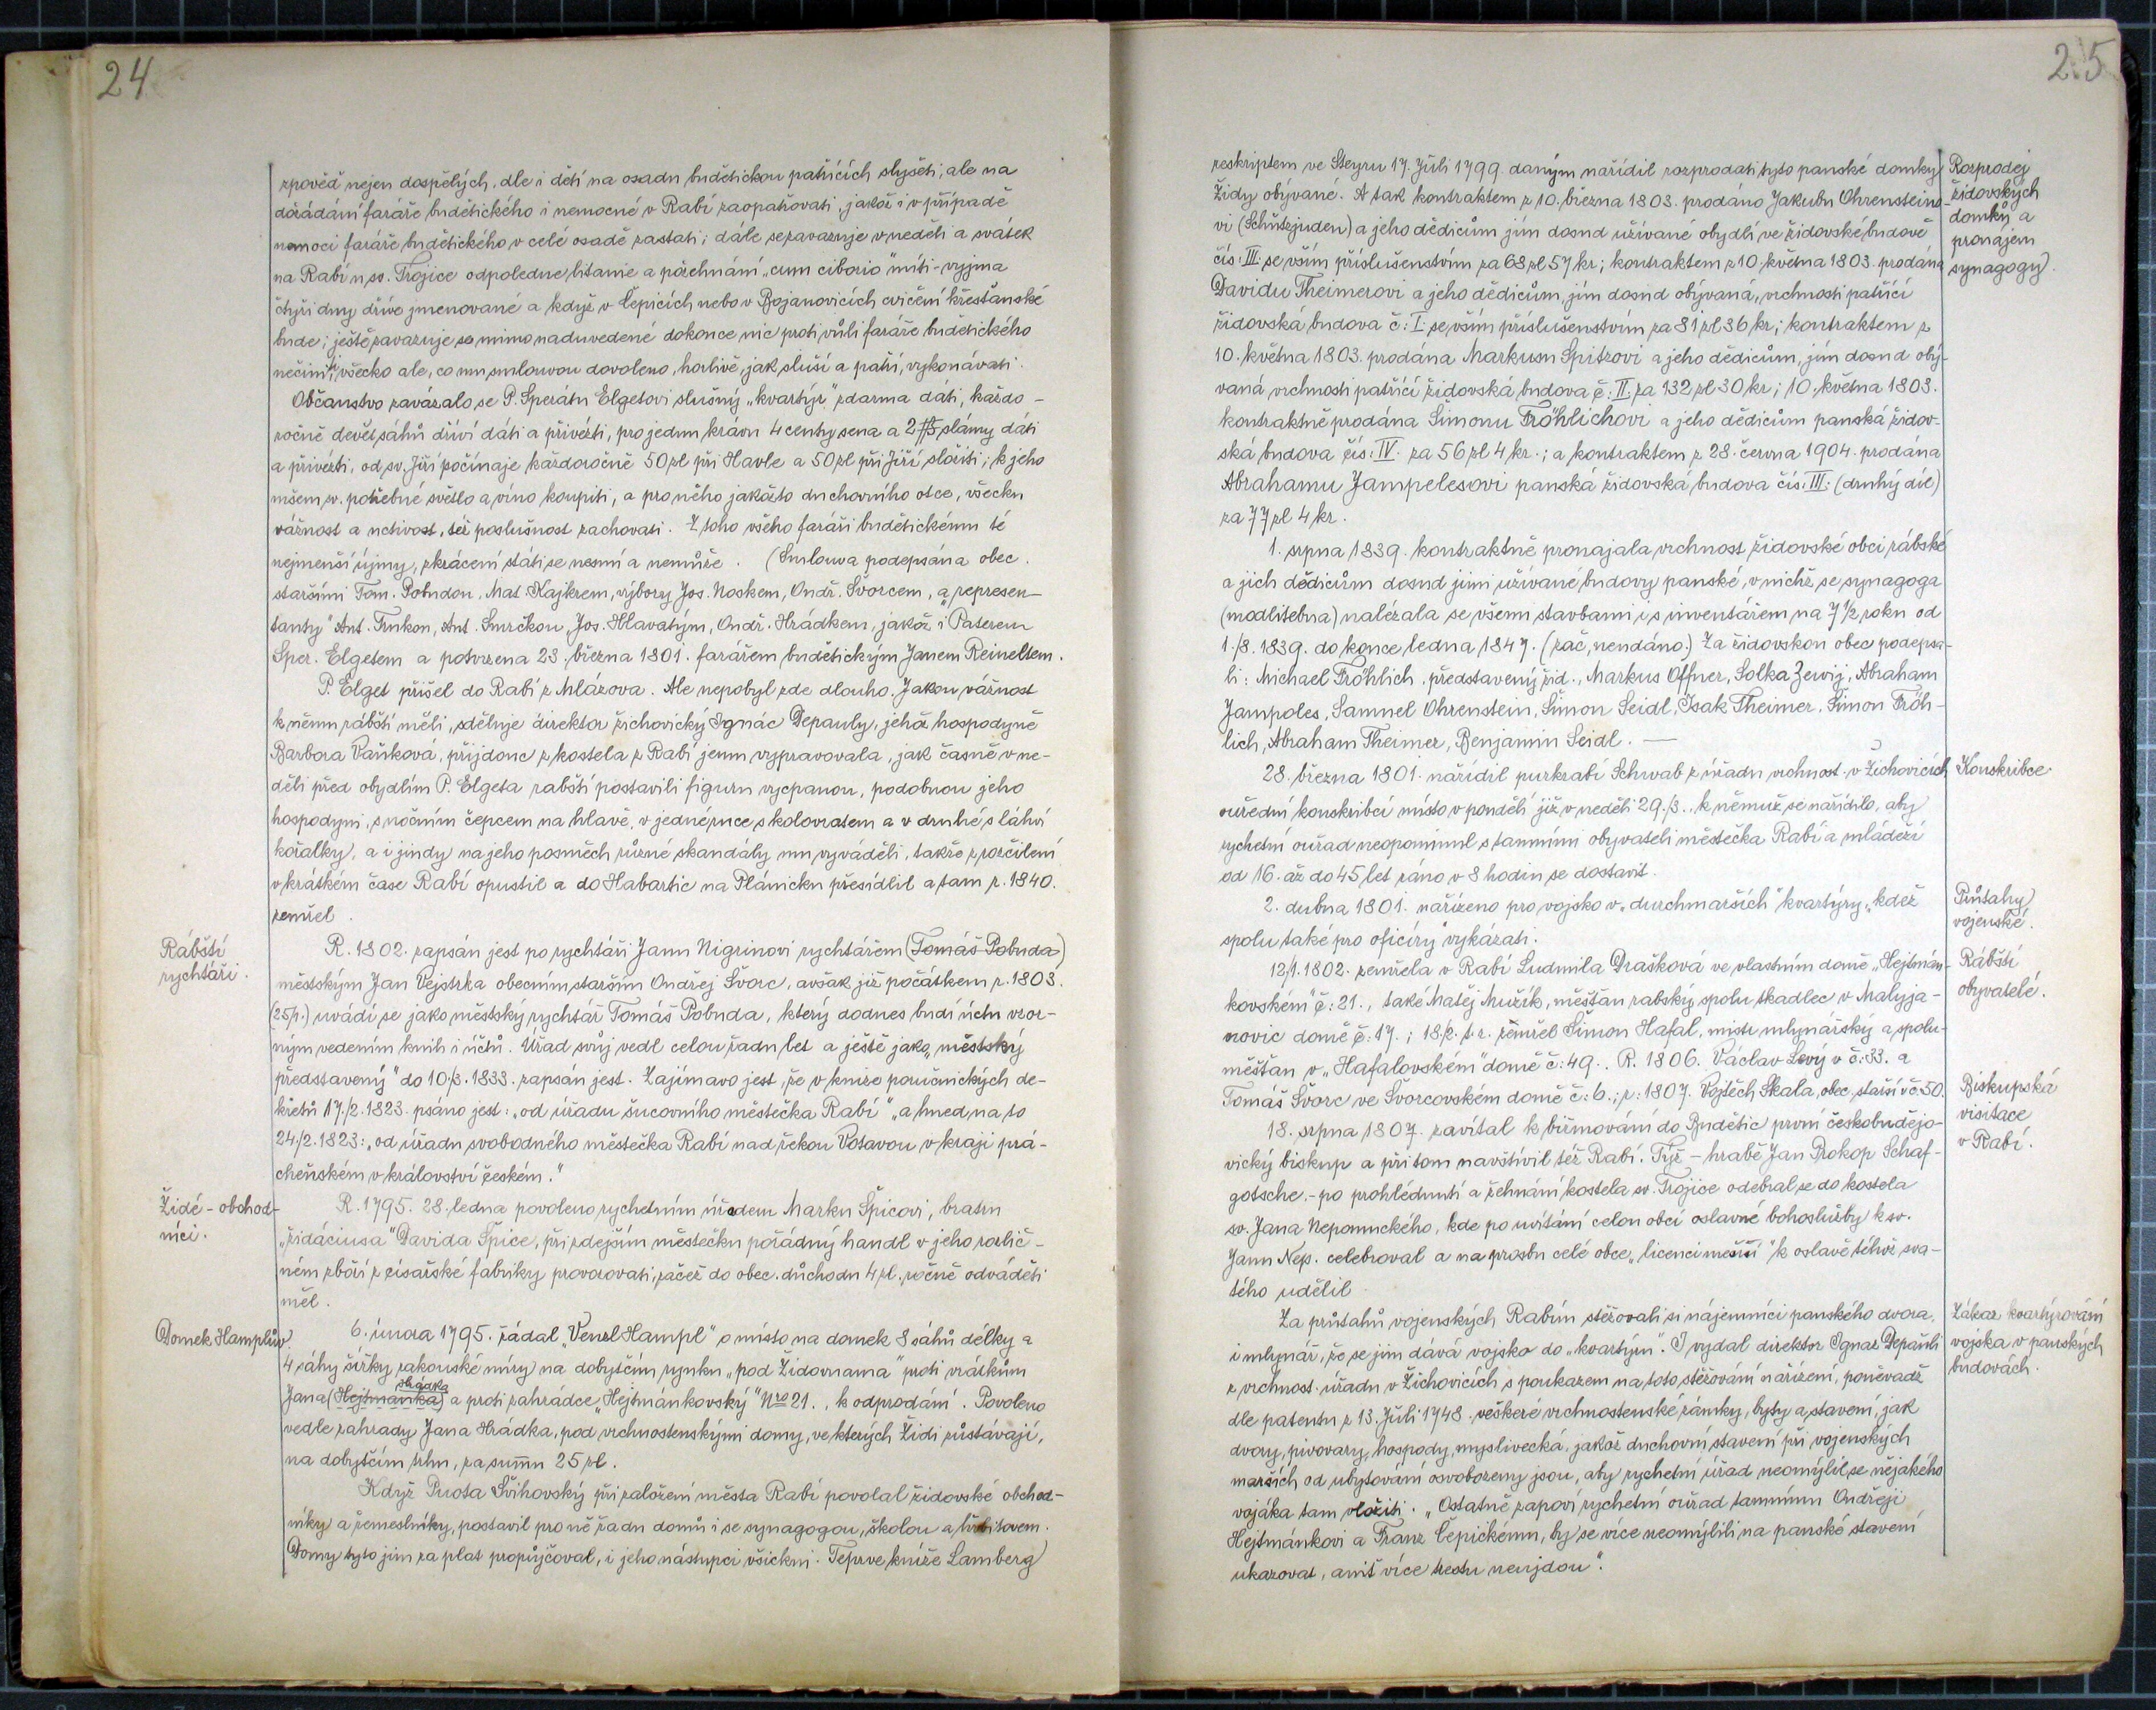 24
zpověď nejen dospělých, ale i dětí na osadu budětickou patřících slyšeti, ale na
dožádání faráře budětického i nemocné v Rabí zaopatřovati, jakož i v případě
nemoci faráře budětického v celé osadě zastati; dále se zavazuje v neděli a svátek
na Rabí u sv. Trojice odpoledne litanie a požehnání „cum ciborio" míti - vyjma
čtyři dny dříve jmenované a když v Čepicích nebo v Bojanovicích cvičení křesťanské
bude; ještě zavazuje se mimo naduvedené dokonce nic proti vůli faráře budětického
nečiniti, všecko ale, co mu smlouvou dovoleno, horlivě, jak sluší a patří, vykonávati.
Občanstvo zavázalo se P. Sperátu Elgetovi slušný „kvartýr" zdarma dáti, každo-
ročně devět sáhů dříví dáti a přivézti, pro jednu krávu 4 centy sena a 2 ß slámy dáti
a přivézti, od sv. Jiří počínaje každoročně 50 zl při Havle a 50 zl při Jiří složiti; k jeho
mšem sv. potřebné světlo a víno koupiti, a pro něho jakožto duchovního otce, všecku
vážnost a uctivost, též poslušnost zachovati. Z toho všeho faráři budětickému té
nejmenší újmy, zkrácení státi se nesmí a nemůže. (Smlouva podepsána obec.
staršími Tom. Pobudou, Mat. Kajkrem, výbory Jos. Noskem, Ondř. Švorcem, a „represen-
tanty" Ant. Trnkou, Ant. Smrčkou, Jos. Hlavatým, Ondř. Hrádkem, jakož i Paterem
Sper. Elgetem a potvrzena 23. března 1801. farářem budětickým Janem Reineltem.
P. Elget přišel do Rabí z Mlázova. Ale nepobyl zde dlouho. Jakou vážnost
k němu rábští měli, sděluje direktor žichovický Ignác Depauly, jehož hospodyně
Barbora Vaňková, přijdouc z kostela z Rabí jemu vypravovala, jak časně v ne-
děli před obydlím P. Elgeta rabští postavili figuru vycpanou, podobnou jeho
hospodyni, s nočním čepcem na hlavě, v jedné ruce s kolovratem a v druhé s láhví
kořalky, a i jindy na jeho posměch různé skandály mu vyváděli, takže z rozčilení
v krátkém čase Rabí opustil a do Habartic na Plánicku přesídlil a tam r. 1840.
zemřel.
Rábští
rychtáři.
R. 1802. zapsán jest po rychtáři Janu Nigrinovi rychtářem (Tomáš Pobuda)
městským Jan Vejstrka obecním starším Ondřej Švorc, avšak již počátkem r. 1803.
(25/1.) uvádí se jako městský rychtář Tomáš Pobuda, který dodnes budí úctu vzor-
ným vedením knih i účtů. Úřad svůj vedl celou řadu let a ještě jako „městský
představený" do 10./3. 1833. zapsán jest. Zajímavo jest, že v knize poručnických de-
kretů 17./2. 1823. psáno jest: „od úřadu šucovního městečka Rabí" „a hned na to
24./2. 1823: „od úřadu svobodného městečka Rabí nad řekou Votavou v kraji prá-
cheňském v království českém."
Židé - obchod-
níci.
R. 1795. 28. ledna povoleno rychetním úřadem Marku Špicovi, bratru
„židáciusa" Davida Špice, při zdejším městečku pořádný handl v jeho rozlič-
ném zboží z císařské fabriky provozovati, začež do obec. důchodu 4 zl. ročně odváděti
měl.
Domek Hamplův.
6. února 1795. žádal „Venzl Hampl" o místo na domek 8 sáhů délky a
4 sáhy šířky rakouské míry na dobytčím rynku „pod Židovnama" proti vrátkům
Hrádka
Jana (Hejtmánka) a proti zahrádce „Hejtmánkovský" Nro 21., k odprodání. Povoleno
vedle zahrady Jana Hrádka, pod vrchnostenskými domy, ve kterých Židi zůstávají,
na dobytčím trhu, za summu 25 zl.
Když Puota Švihovský při založení města Rabí povolal židovské obchod-
níky a řemeslníky, postavil pro ně řadu domů i se synagogou, školou a hřbitovem.
Domy tyto jim za plat propůjčoval, i jeho nástupci všickni. Teprve kníže Lamberg
25
reskriptem ve Steyru 17. Júli 1799. daným nařídil rozprodati tyto panské domky
Židy obývané. A tak kontraktem z 10. března 1803. prodáno Jakubu Ohrensteino-
vi (Schutzjuden) a jeho dědicům jím dosud užívané obydlí ve židovské budově
čís: III. se vším příslušenstvím za 68 zl 57 kr; kontraktem z 10. května 1803. prodána
Davidu Theimerovi a jeho dědicům, jím dosud obývaná, vrchnosti patřící
židovská budova č: I. se vším příslušenstvím za 81 zl 36 kr; kontraktem z
10. května 1803. prodána Markusu Spitzovi a jeho dědicům, jím dosud obý-
vaná vrchnosti patřící židovská budova č: II. za 132 zl 30 kr; 10. května 1803.
kontraktně prodána Šimonu Fröhlichovi a jeho dědicům panská židov-
ská budova čís: IV. za 56 zl 4 kr.; a kontraktem z 28. června 1904. prodána
Abrahamu Jampelesovi panská židovská budova čís: III: (druhý díl)
za 77 zl 4 kr.
Rozprodej
židovských
domků a
pronájem
synagogy.
1. srpna 1839. kontraktně pronajala vrchnost židovské obci rábské
a jich dědicům dosud jimi užívané budovy panské, v nichž se synagoga
(modlitebna) nalézala se všemi stavbami i s inventářem na 7 1/2 roku od
1./8. 1839. do konce ledna 1847. (zač, neudáno.) Za židovskou obec podepsa-
li: Michael Fröhlich. představený žid., Markus Offner, Solka Zewig, Abraham
Jampoles, Samuel Ohrenstein, Šimon Seidl, Isak Theimer, Šimon Fröh-
lich, Abraham Theimer, Benjamin Seidl. —
28. března 1801. nařídil purkrabí Schwab z úřadu vrchnost. v Žichovicích
ouřední konskribcí místo v pondělí již v neděli 29./3.. k němuž se nařídilo, aby
rychetní ouřad neopominul s tamními obyvateli městečka Rabí a mládeží
od 16. až do 45 let ráno v 8 hodin se dostavit.
Konskribce.
2. dubna 1801. nařízeno pro vojsko v „durchmarších" kvartýry, „kdež
spolu také pro oficíry" vykázati.
Průtahy
vojenské.
12/1. 1802. zemřela v Rabí Ludmila Drašková ve vlastním domě „Hejtmán-
kovském" č: 21., také Matěj Mužík, měšťan rabský, spolu tkadlec v Malyja-
novic domě č: 17.; 18/2. t. r. zemřel Šimon Hafal, mistr mlynářský a spolu-
měšťan v „Hafalovském" domě č: 49.. R. 1806. Václav Levý v č: 33. a
Tomáš Švorc ve Švorcovském domě č: 6.; r: 1807. Vojtěch Skala, obec. starší v č: 50.
Rábští
obyvatelé.
18. srpna 1807. zavítal k biřmování do Budětic první českobudějo-
vický biskup a při tom navštívil též Rabí. Týž - hrabě Jan Prokop Schaf-
gotsche. - po prohlédnutí a žehnání kostela sv. Trojice odebral se do kostela
sv. Jana Nepomuckého, kde po uvítání celou obcí oslavné bohoslužby k sv.
Janu Nep. celebroval a na prosbu celé obce „licenci mešší" k oslavě téhož sva-
tého udělil.
Biskupská
visitace
v Rabí.
Za průtahů vojenských Rabím stěžovali si nájemníci panského dvora,
i mlynář, že se jim dává vojsko do „kvartýru". I vydal direktor Ignaz Depauli
z vrchnost. úřadu v Žichovicích s poukazem na toto stěžování nařízení, poněvadž
dle patentu z 13. Júli 1748. veškeré vrchnostenské zámky, byty a stavení, jak
dvory, pivovary, hospody, myslivecká, jakož duchovní stavení při vojenských
marších od ubytování osvobozeny jsou, aby rychetní úřad neomýlil se nějakého
vojáka tam vložiti. „Ostatně zapoví rychetní ouřad tamnímu Ondřeji
Hejtmánkovi a Franz Čepickému, by se více neomýlili na panské stavení
ukazovat, aniž více trestu neujdou".
Zákaz kvartýrování
vojska v panských
budovách.